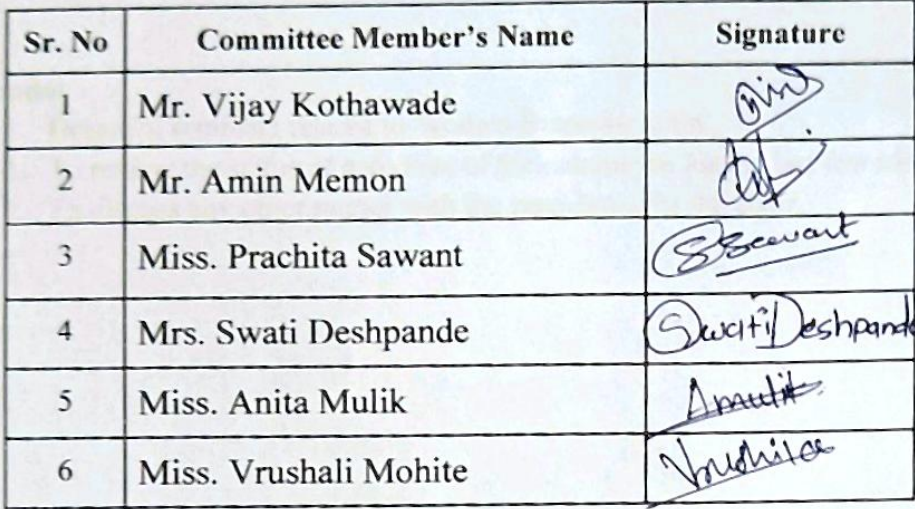 Sr. No Committee Member's Name Signature
1 Mr. Vijay Kothawade
2 Mr. Amin Memon
3 Miss. Prachita Sawant
4 Mrs. Swati Deshpande Swati Deshpande
5 Miss. Anita Mulik Amulik
6 Miss. Vrushali Mohite